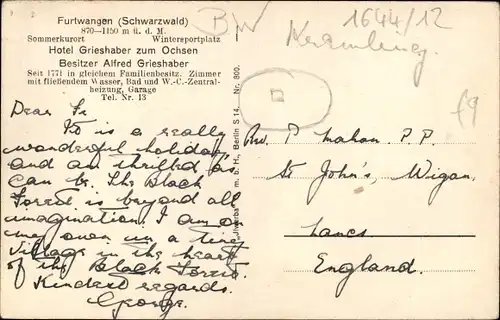 Furtwangen (Schwarzwald)
870—1150 m ü. d. M.
Sommerkurort Wintersportplatz
Hotel Grieshaber zum Ochsen
Besitzer Alfred Grieshaber
Seit 1771 in gleichem Familienbesitz. Zimmer
mit fließendem Wasser, Bad und W.-C.-Zentral-
heizung, Garage
Tel. Nr. 13
Dear Fr
is a really
wonderful holiday
and am thrilled as
can be. The Black
Forest is beyond all
imagination. I am on
my own in a tiny
village in the heart
of the Black Forest.
Kindest regards.
George.
m. b. H., Berlin S 14. Nr. 800.
B/W
1644/12
f9
Rev. P Mahon P.P.
St John's, Wigan,
Lancs.
England.